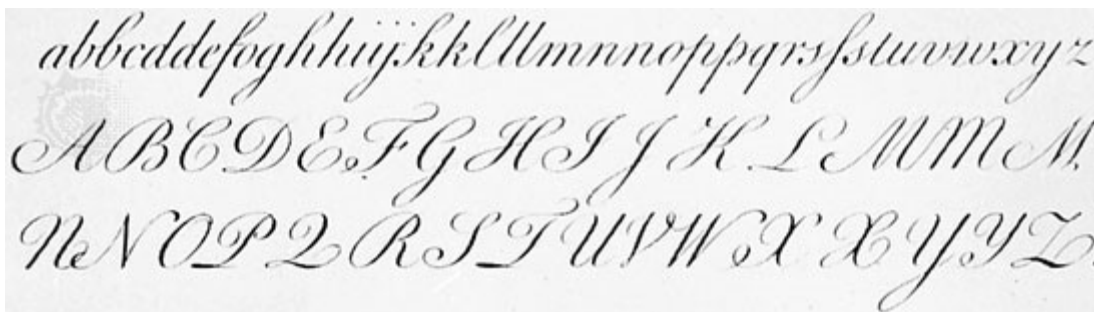 abbcddefoghhiijkkllllmnnnoppqrsſstuvwxyz
ABCDEFGHIJKLMMM.
NNOPQRSTUVWXXYYZ.